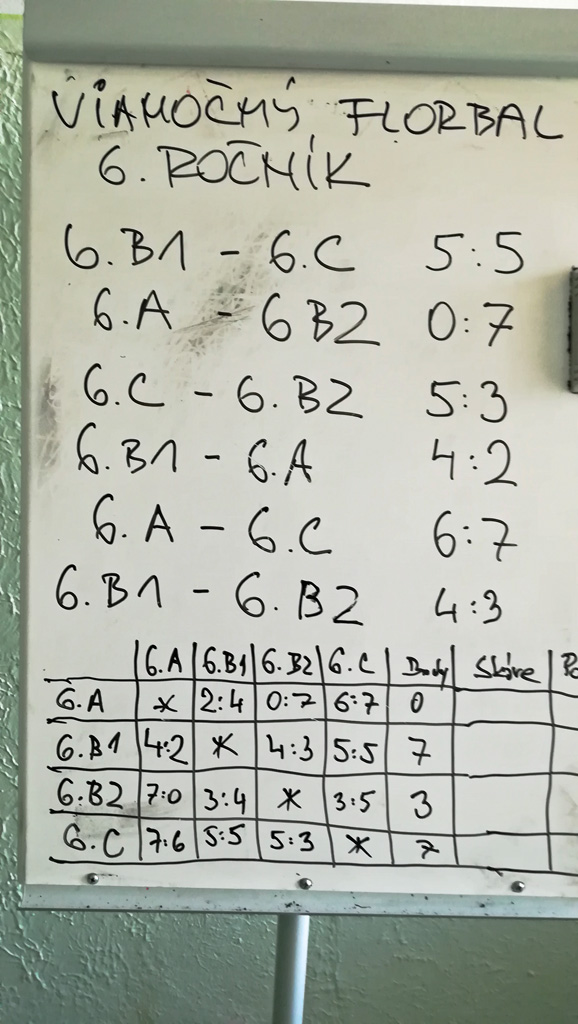 VIANOČNÝ FLORBAL
6. ROČNÍK
6.B1 - 6.C 5:5
6.A - 6B2 0:7
6.C - 6.B2 5:3
6.B1 - 6.A 4:2
6.A - 6.C 6:7
6.B1 - 6.B2 4:3
6.A 6.B1 6.B2 6.C Body Skóre Po
6.A * 2:4 0:7 6:7 0
6.B1 4:2 * 4:3 5:5 7
6.B2 7:0 3:4 * 3:5 3
6.C 7:6 5:5 5:3 * 7